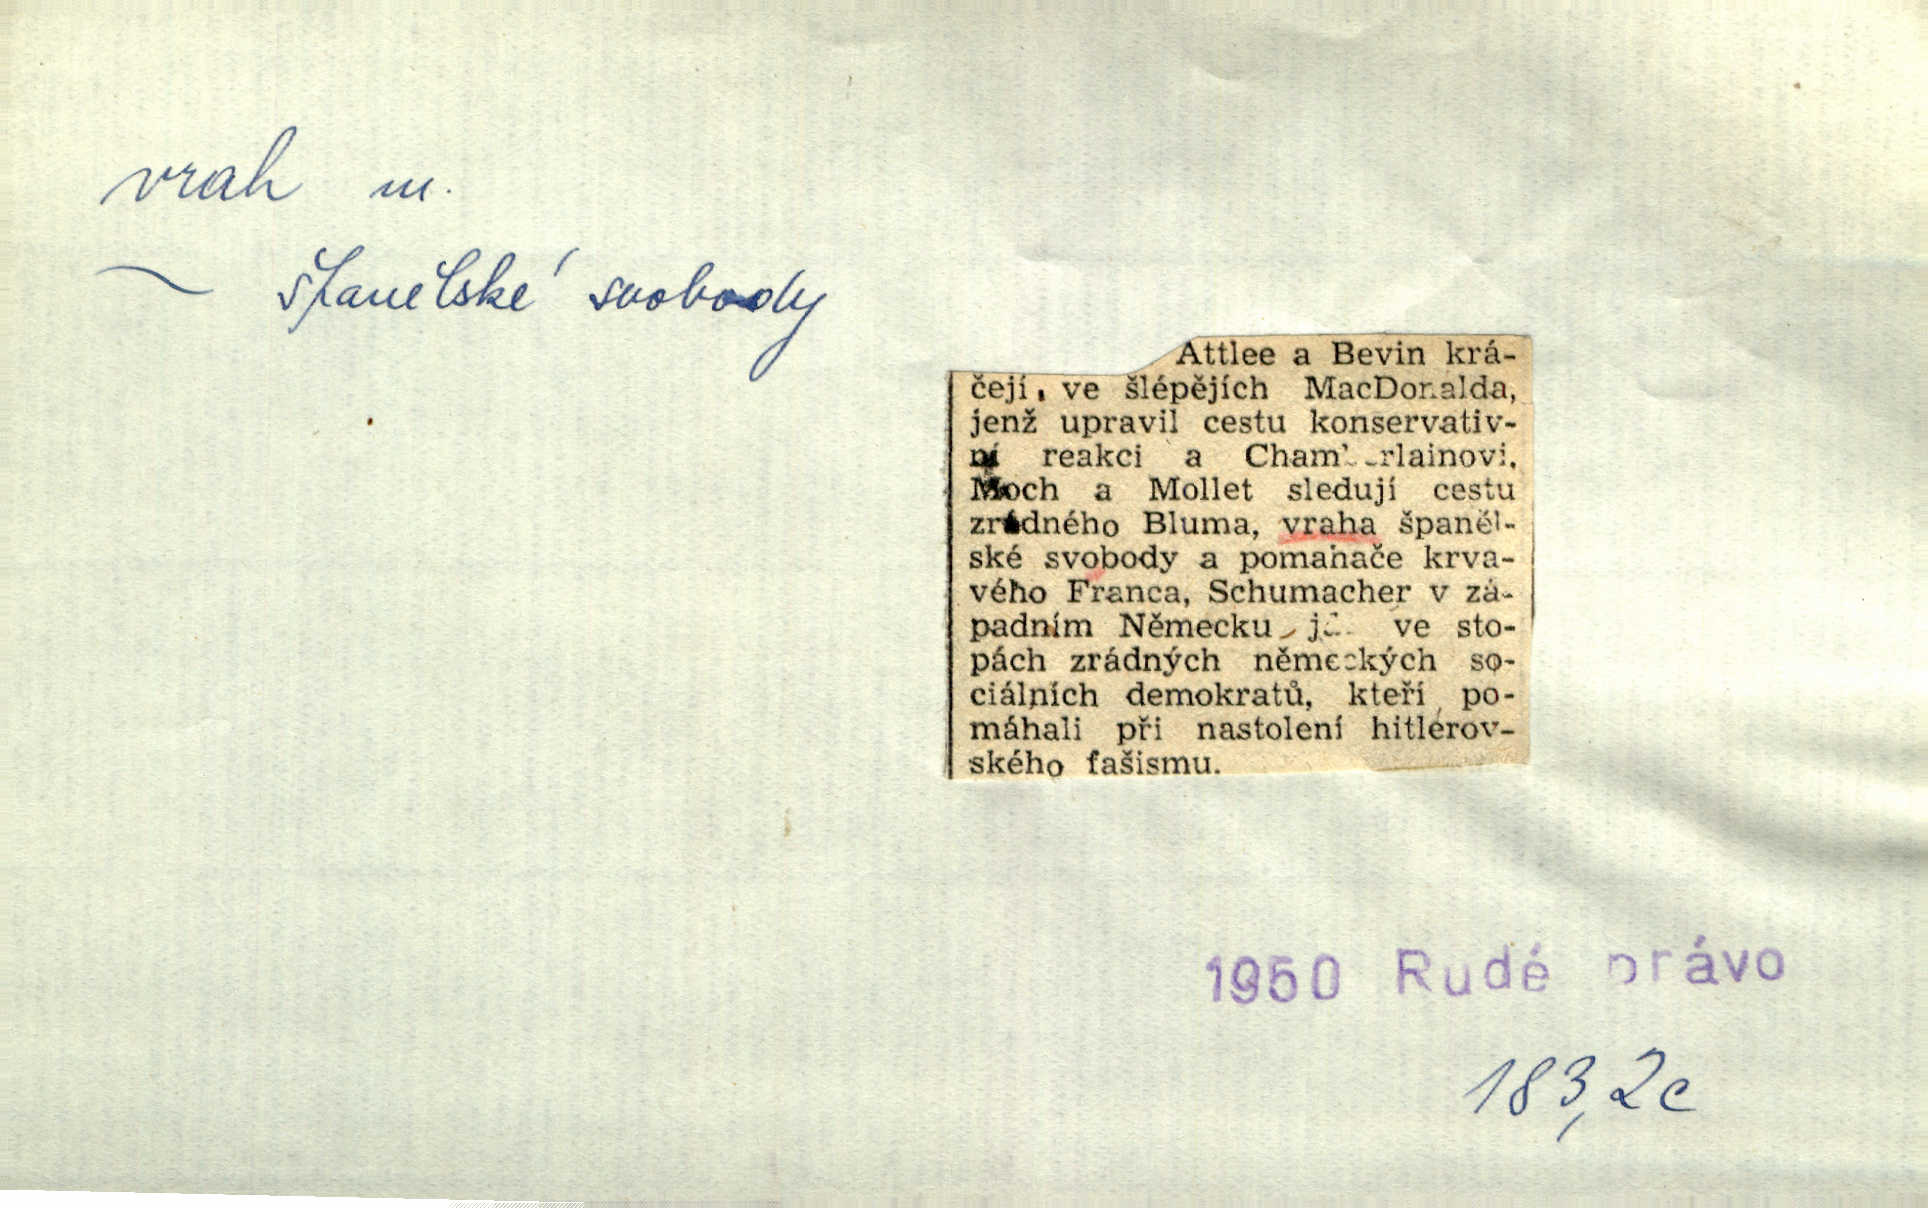 vrah m.
~ španělské svobody
Attlee a Bevin krá-
čejí ve šlépějích MacDonalda,
jenž upravil cestu konservativ-
ní reakci a Chamberlainovi.
Moch a Mollet sledují cestu
zrádného Bluma, vraha španěl-
ské svobody a pomahače krva-
vého Franca, Schumacher v zá-
padním Německu ve sto-
pách zrádných německých so-
ciálních demokratů, kteří po-
máhali při nastolení hitlerov-
ského fašismu.
1950 Rudé právo
183, 2c